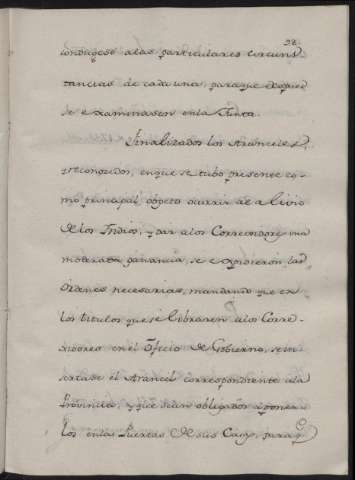 28.
condugese alas particulares circuns
tancias de cada una, para que despues
se examinasen en la Junta.
Finalizados los Aranceles,
y reconocidos, en que se tubo presente co-
mo principal obgeto ocurrir al alivio
de los Indios, y dar alos Corregidores una
moderada ganancia, se expidieron las
órdenes necesarias, mandando que en
los titulos que se libraren alos Corre-
xidores en el Oficio de Gobierno, se in-
sertase el Arancel correspondiente ala
Provincia, y que sean obligados a poner
los en las Puertas de sus Casas, para q.e